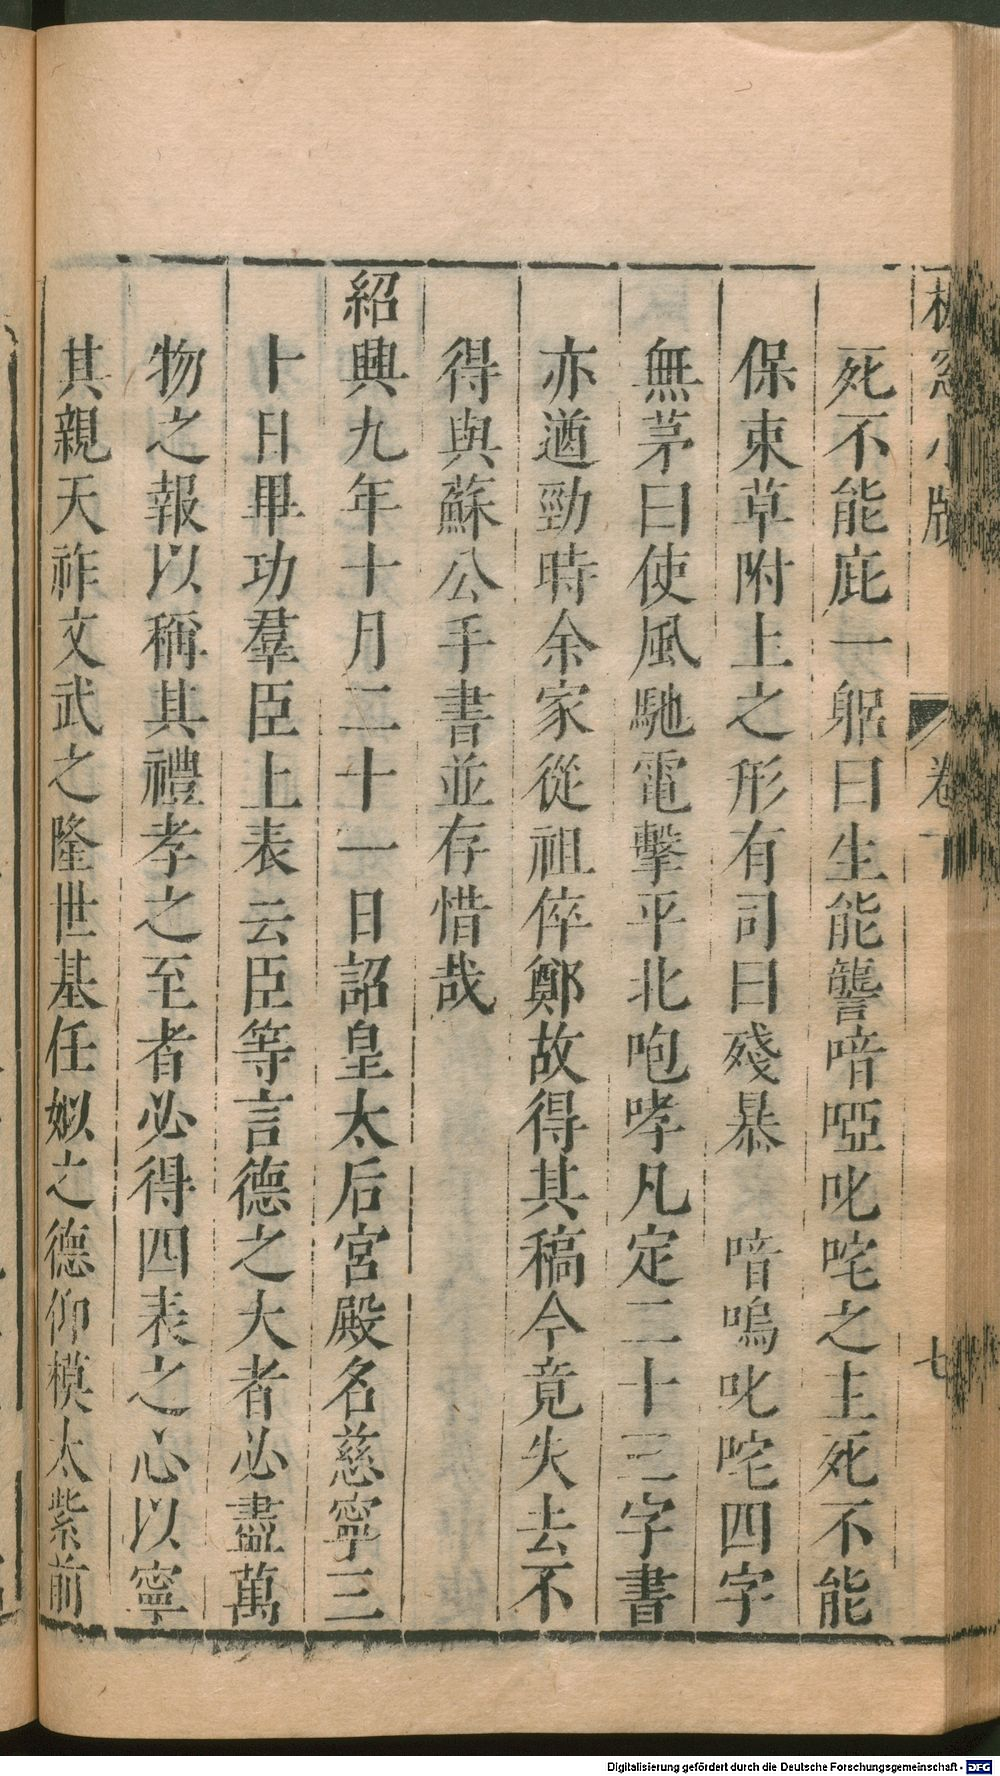 死不能庇一躬曰生能讋喑啞叱咤之主死不能
保束草附上之形有司曰殘暴　喑嗚叱咤四字
無茅曰使風馳電擊平北咆哮凡定二十三字書
亦遒勁時余家從祖倅鄭故得其稿今竟失去不
得與蘇公手書並存惜哉
紹興九年十月二十一日詔皇太后宮殿名慈寧三
十日畢功羣臣上表云臣等言德之大者必盡萬
物之報以稱其禮孝之至者必得四表之心以寧
其親天祚文武之隆世基任姒之德仰模太紫前
卷
七
Digitalisierung gefördert durch die Deutsche Forschungsgemeinschaft - DFG